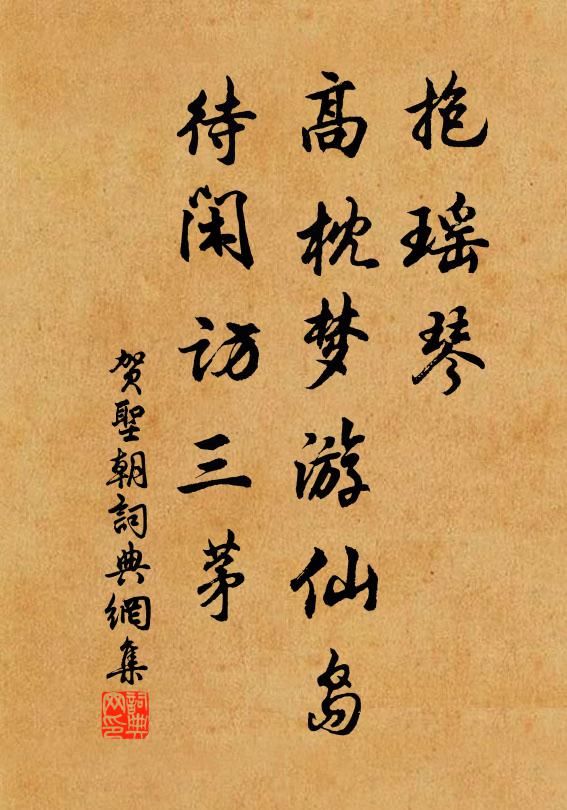 抱瑶琴
高枕梦游仙岛
待闲访三茅
贺聖朝詞典網集
詞典网印